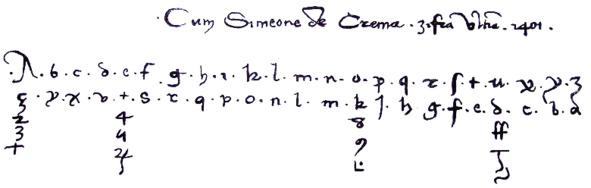 · Cum Simeone de Crema · 3 · 1401 ·
· A · b · c · d · e · f · g · h · i · k · l · m · n · o · p · q · r · s · t · u · x · y · z
z · y · x · v · t · s · r · q · p · o · n · l · m · k j · h g · f · e · d · c · b · a
2 4 8 ff
3 4 9
+